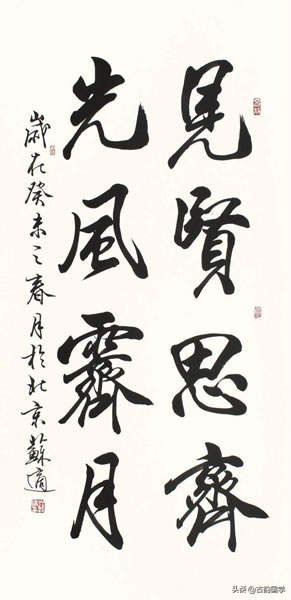 見賢思齊
光風霽月
歲在癸未之春月於北京蘇適
头条@古韵国学